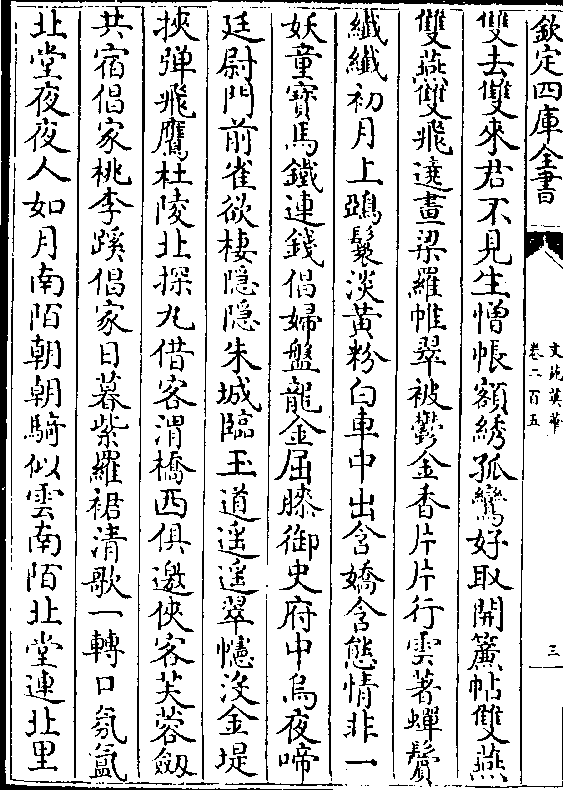 欽定四庫全書
文苑英華
卷二百五
三
雙去雙來君不見生憎帳額綉孤鸞好取開簾帖雙燕
雙燕雙飛遶畫梁羅帷翠被鬱金香片片行雲著蟬鬢
纖纖初月上鵶鬟淡黄粉白車中出含嬌含態情非一
妖童寶馬鐵連錢倡婦盤龍金屈膝御史府中烏夜啼
廷尉門前雀欲棲隠隠朱城臨玉道遥遥翠幰没金堤
挾弹飛鷹杜陵北探九借客渭橋西俱邀俠客芙蓉劔
共宿倡家桃李蹊倡家日暮紫羅裙清歌一轉口氛氲
北堂夜夜人如月南陌朝朝騎似雲南陌北堂連北里